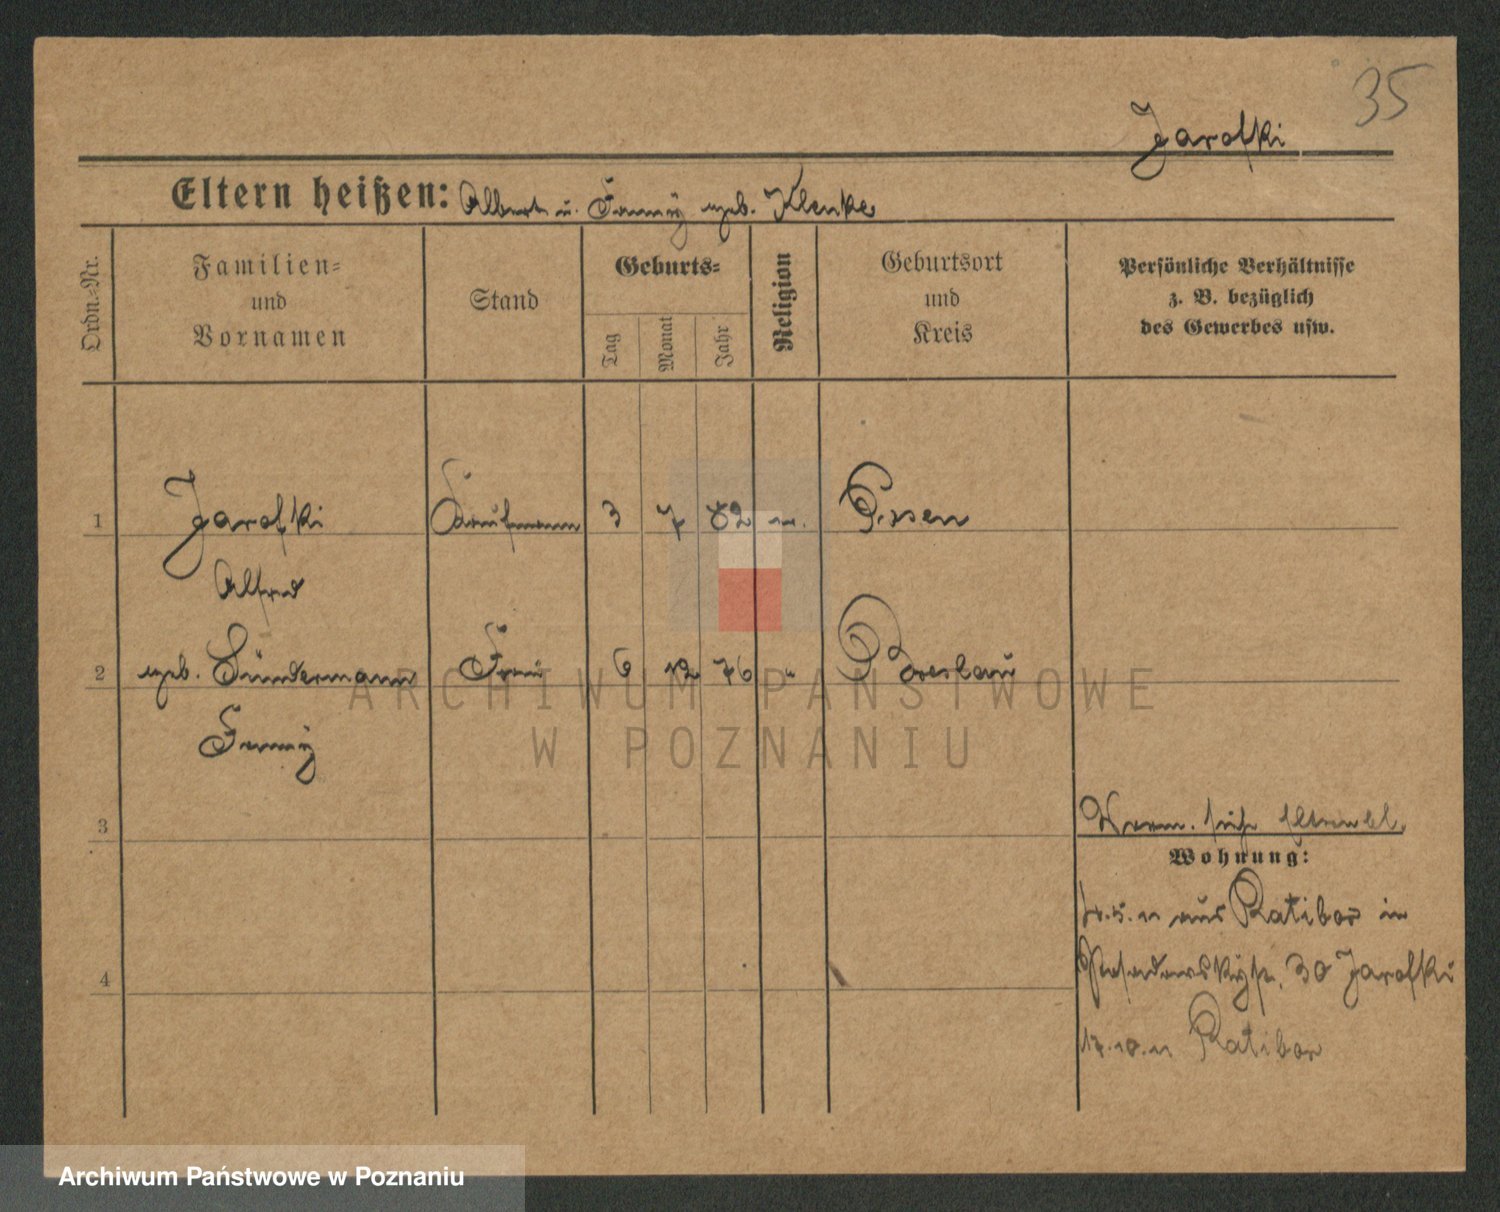 35
Jarofki
Eltern heißen: Albert u. Fanny geb. Klenke
Ordn.-Nr.
Familien-
und
Vornamen
Stand
Geburts-
Tag
Monat
Jahr
Religion
Geburtsort
und
Kreis
Persönliche Verhältnisse
z. B. bezüglich
des Gewerbes usw.
1 Jarofki Kaufmann 3 7 82 m. Essen
Alfred
2 geb. Sündermann Frau 6 12 76 " Breslau
Fanny
3
Verm. siehe
Wohnung:
aus Ratibor in
30 Jarofki
4
17.10.11 Ratibor
ARCHIWUM PAŃSTWOWE
W POZNANIU
Archiwum Państwowe w Poznaniu